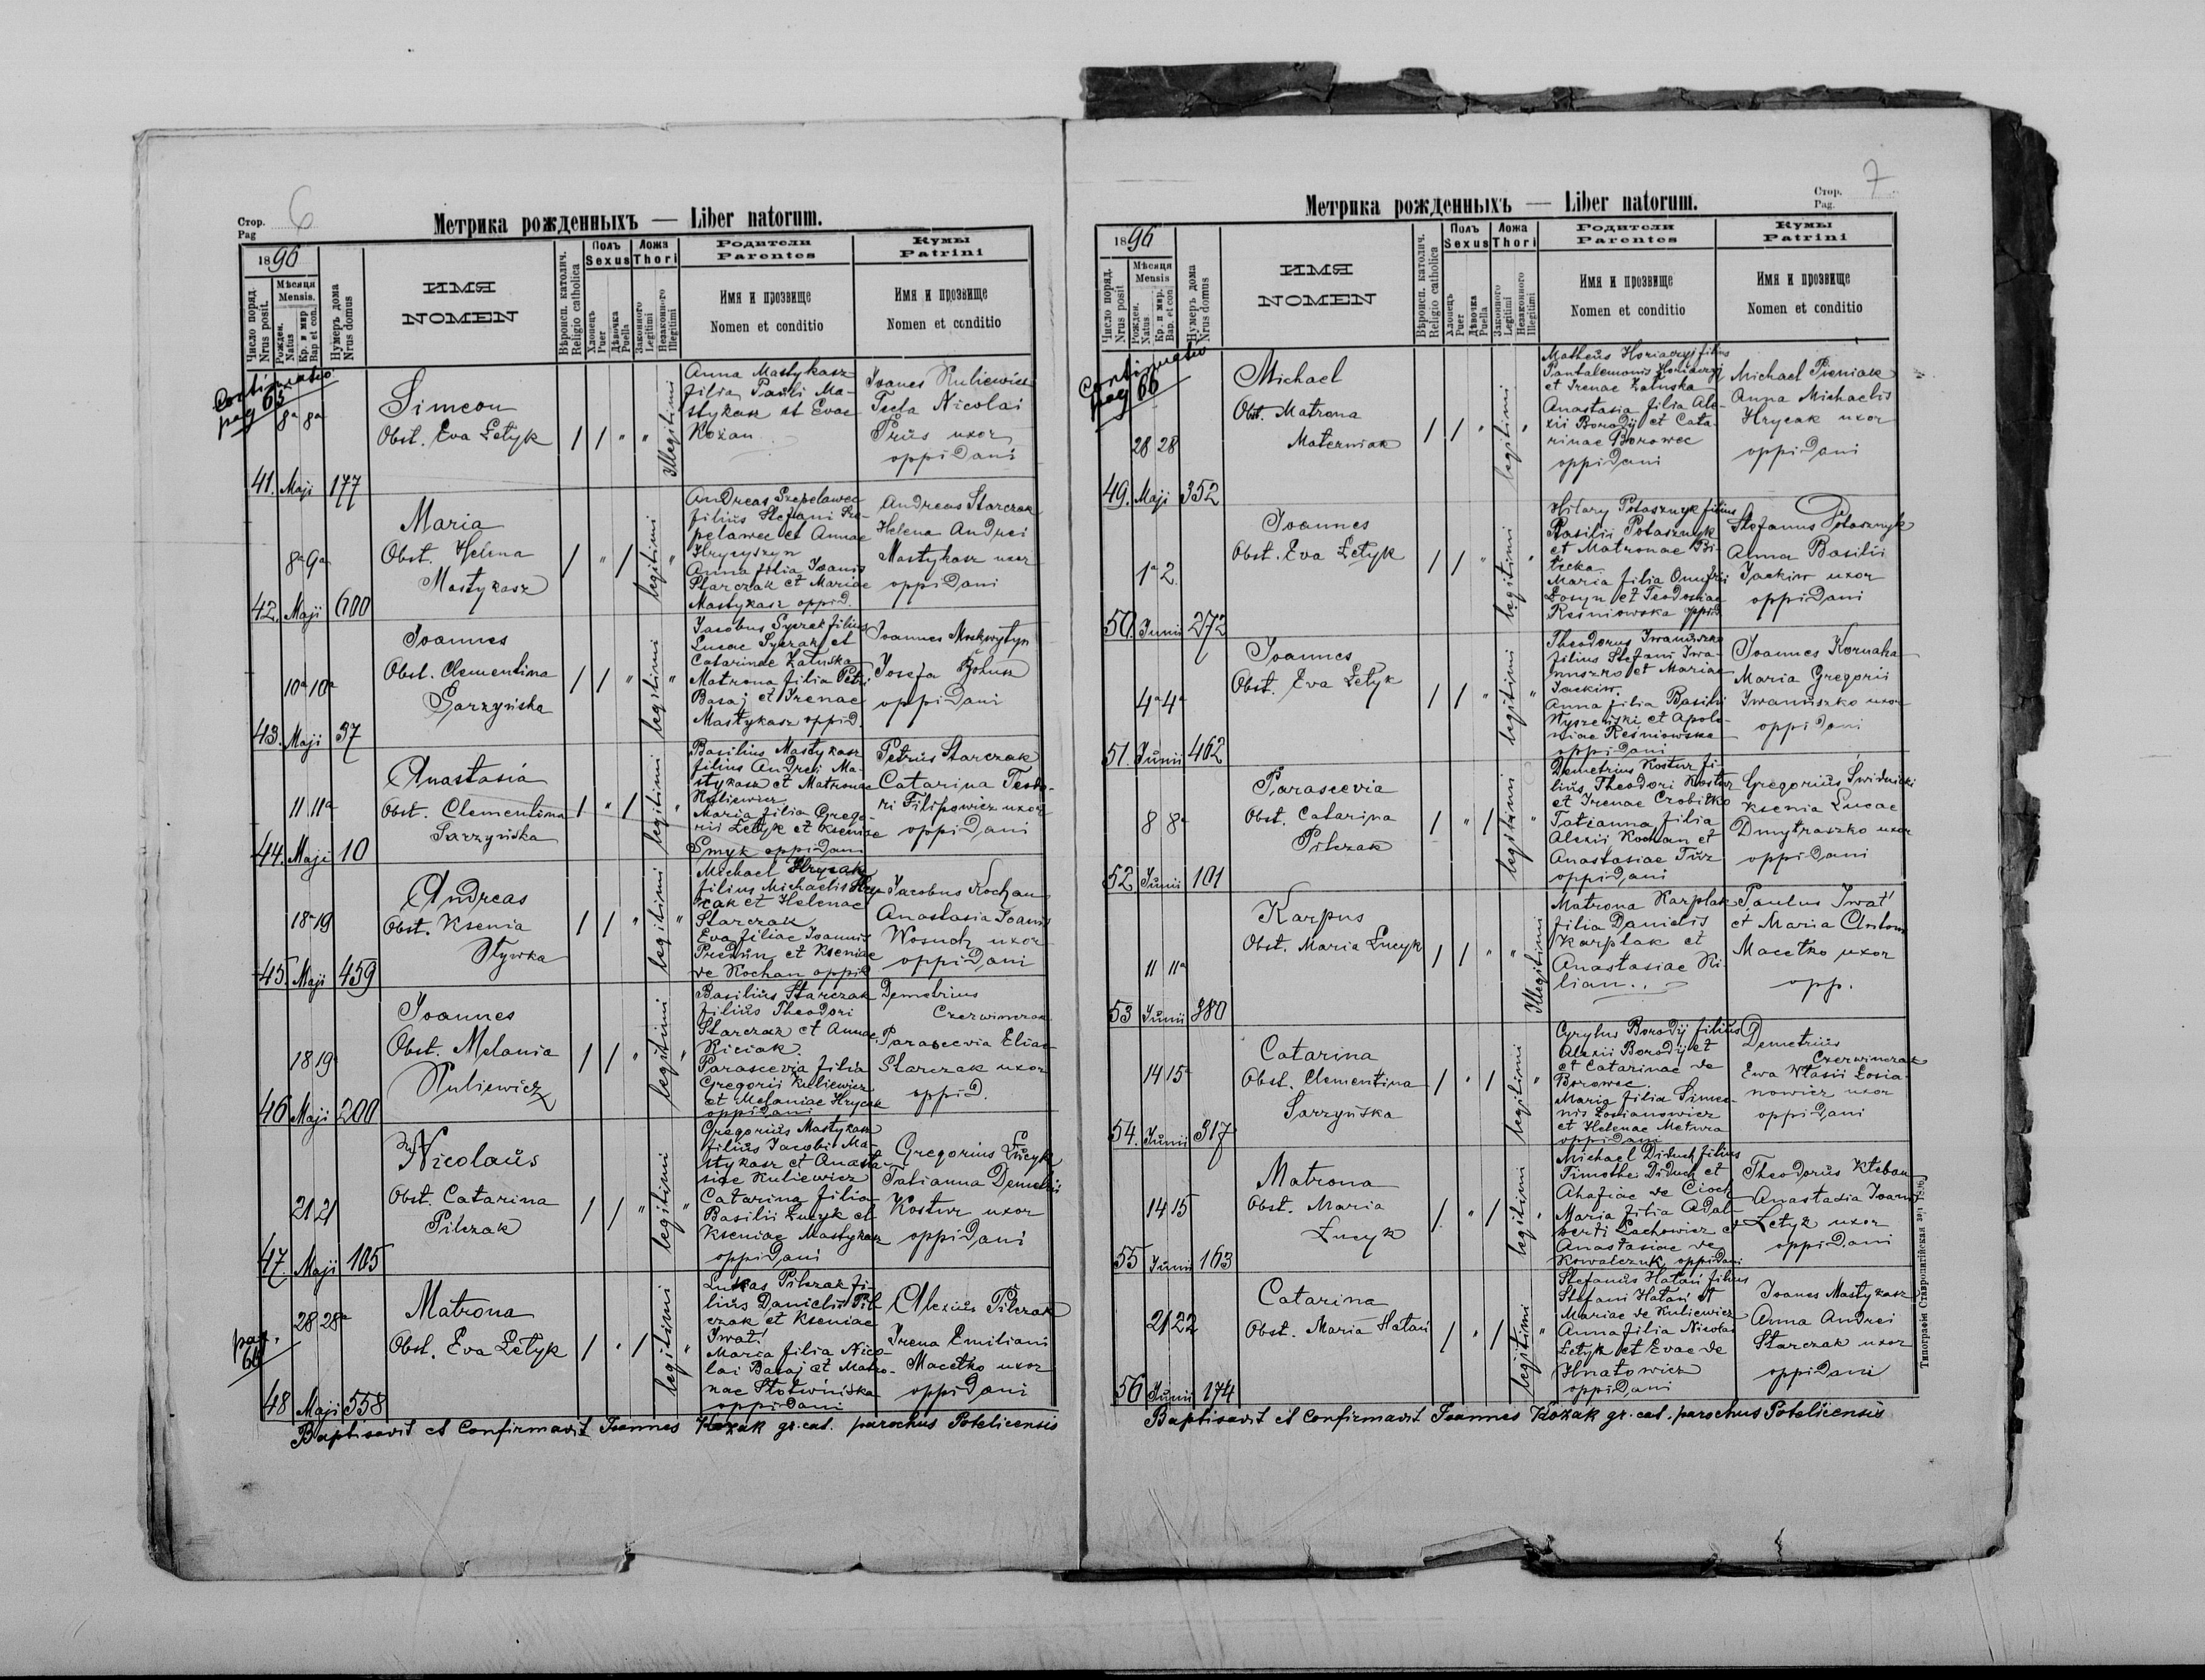 Стор.
Pag
6
Метрика рожденныхъ — Liber natorum.
1896
Число поряд.
Nrus posit.
Мѣсяця
Mensis.
Рожден.
Natus
Кр. и мир
Bap et con.
Нумеръ дома
Nrus domus
ИМЯ
NOMEN
Вѣроисп. католич.
Religio catholica
Полъ
Sexus
Хлопецъ
Puer
Дѣвочка
Puella
Ложа
Thori
Законного
Legitimi
Незаконного
Illegitimi
Родители
Parentes
Имя и прозвище
Nomen et conditio
Кумы
Patrini
Имя и прозвище
Nomen et conditio
Continuatio
pag 65
41. Maji 177
8a 8a
Simeon
Obst. Eva Letyk
/ / " "
Illegitimi
Anna Mastykasz
filia Pauli Ma-
stykasz et Evae
Kozan
Joanes Kuliewicz
Tecla Nicolai
Prus uxor
oppidani
42. Maji 600
8a 9a
Maria
Obst. Helena
Mastykasz
/ " /
legitimi
"
Andreas Szepelawec
filius Stefani Sze-
pelawec et Annae
Hrycyszyn
Anna filia Joanis
Starczak et Mariae
Mastykasz oppid.
Andreas Starczak
Helena Andrei
Mastykasz uxor
oppidani
43. Maji 37
10a 10a
Joannes
Obst. Clementina
Sarzyńska
/ / "
legitimi
"
Jacobus Syczak filius
Lucae Syczak et
Catarinae Załuska
Matrona filia Petri
Basaj et Irenae
Mastykasz oppid
Joannes
Josefa
oppidani
44. Maji 10
11 11a
Anastasia
Obst. Clementina
Sarzyńska
/ " /
legitimi
"
Basilius Mastykasz
filius Andrei Ma-
stykasz et Matronae
Kuliewicz
Maria filia Grego-
rii Letyk et Kseniae
Smyk oppidani
Petrus Starczak
Catarina Teodo-
ri Filipowicz uxor
oppidani
45. Maji 459
18 19
Andreas
Obst. Ksenia
Stywka
/ / "
legitimi
"
Michael Hrycak
filius Michaelis Hry-
cak et Helenae
Starczak
Eva filiae Joannis
et Kseniae
de Kochan oppid
Jacobus Kochan
Anastasia Joanis
uxor
oppidani
46 Maji 200
18 19
Joannes
Obst. Melania
Kuliewicz
/ / "
legitimi
"
Basilius Starczak
filius Theodori
Starczak et Annae
Kiciak.
Parascevia filia
Gregorii Kuliewicz
et Melaniae Hrycak
oppidani
Demetrius
Czerwinczak
Parascevia Eliae
Starczak uxor
oppid.
47. Maji 105
21 21
Nicolaus
Obst. Catarina
Pilczak
/ / "
legitimi
"
Gregorius Mastykasz
filius Jacobi Ma-
stykasz et Anasta-
siae Kuliewicz
Catarina filia
Basilii Łucyk et
Kseniae Mastykasz
oppidani
Gregorius Łucyk
Tatianna Demetrii
Kostur uxor
oppidani
pag.
66
48 Maji 558
28 28a
Matrona
Obst. Eva Letyk
/ " /
legitimi
"
Lukas Pilczak fi-
lius Danielis Pil-
czak et Kseniae
Iwat!
Maria filia Nico-
lai Basaj et Matro-
nae Słotwińska
oppidani
Alexius Pilczak
Irena Emiliani
Macetko uxor
oppidani
Baptisavit et Confirmavit Joannes Kozak gr. cat. parochus Potelicensis
Стор.
Pag.
7
Метрика рожденныхъ — Liber natorum.
1896
Число поряд.
Nrus posit
Мѣсяця
Mensis
Рожден.
Natus
Кр. и мир.
Bap. et con
Нумеръ дома
Nrus domus
ИМЯ
NOMEN
Вѣроисп. католич.
Religio catholica
Полъ
Sexus
Хлопецъ
Puer
Дѣвочка
Puella
Ложа
Thori
Законного
Legitimi
Незаконного
Illegitimi
Родители
Parentes
Имя и прозвище
Nomen et conditio
Кумы
Patrini
Имя и прозвище
Nomen et conditio
Continuatio
pag 66
49. Maji 352
28 28
Michael
Obst. Matrona
Materniak
/ / "
legitimi
"
Matheus filius
Pantalemonis
et Irenae Załuska
Anastasia filia Ale-
xii Borodij et Cata-
rinae Borowec
oppidani
Michael Pieniak
Anna Michaelis
Hrycak uxor
oppidani
50. Junii 272
1a 2
Joannes
Obst. Eva Letyk
/ / "
legitimi
"
Hilary Potasznyk filius
Basilii Potasznyk
et Matronae Bi-
tecka.
Maria filia Onufrii
Łosyn et Teodosiae
Resniowska oppid
Stefanus Potasznyk
Anna Basilii
Jackiw uxor
oppidani
51. Junii 462
4a 4a
Joannes
Obst. Eva Letyk
/ / "
legitimi
"
Theodorus Iwanuszko
filius Stefani Iwa-
nuszko et Mariae
Jackiw.
Anna filia Basilii
et Apolo-
niae Resniowska
oppidani
Joannes Kornaha
Maria Gregorii
Iwanuszko uxor
oppidani
52 Junii 101
8 8a
Parascevia
Obst. Catarina
Pilczak
/ " /
legitimi
"
Demetrius Kostur fi-
lius Theodori Kostur
et Irenae Czobitko
Tatianna filia
Alexii Kochan et
Anastasiae Tur
oppidani
Gregorius Swidnicki
Ksenia Lucae
Dmytraszko uxor
oppidani
53 Junii 380
11 11a
Karpus
Obst. Maria Łucyk
/ / " "
Illegitimi
Matrona Karplak
filia Danielis
Karplak et
Anastasiae Ki-
lian..
Paulus Iwat'
et Maria Antoni
Macetko uxor
opp.
54. Junii 317
14 15
Catarina
Obst. Clementina
Sarzyńska
/ " /
legitimi
"
Cyrylus Borodij filius
Alexii Borodij et
et Catarinae de
Borowec.
Maria filia Simeo-
nis Łosianowicz
et Helenae Metura
oppidani
Demetrius
Czerwinczak
Ewa Własii Łosia-
nowicz uxor
oppidani
55 Junii 163
14 15
Matrona
Obst. Maria
Łucyk
/ " /
legitimi
"
Michael Diduch filius
Timothei Diduch et
Ahafiae de Cioch
Maria filia Adal-
berti Lachowicz et
Anastasiae de
Kowalczuk oppidani
Theodorus Kteban
Anastasia Joannis
Letyk uxor
oppidani
56 Junii 174
21 22
Catarina
Obst. Maria Hatań
/ " /
legitimi
"
Stefanus Hatań filius
Stefani Hatań et
Mariae de Kuliewicz
Anna filia Nicolai
Letyk et Evae de
Hnatowicz
oppidani
Joanes Mastykasz
Anna Andrei
Starczak uxor
oppidani
Baptisavit et Confirmavit Joannes Kozak gr. cat. parochus Potelicensis
Типографія Ставропигійская